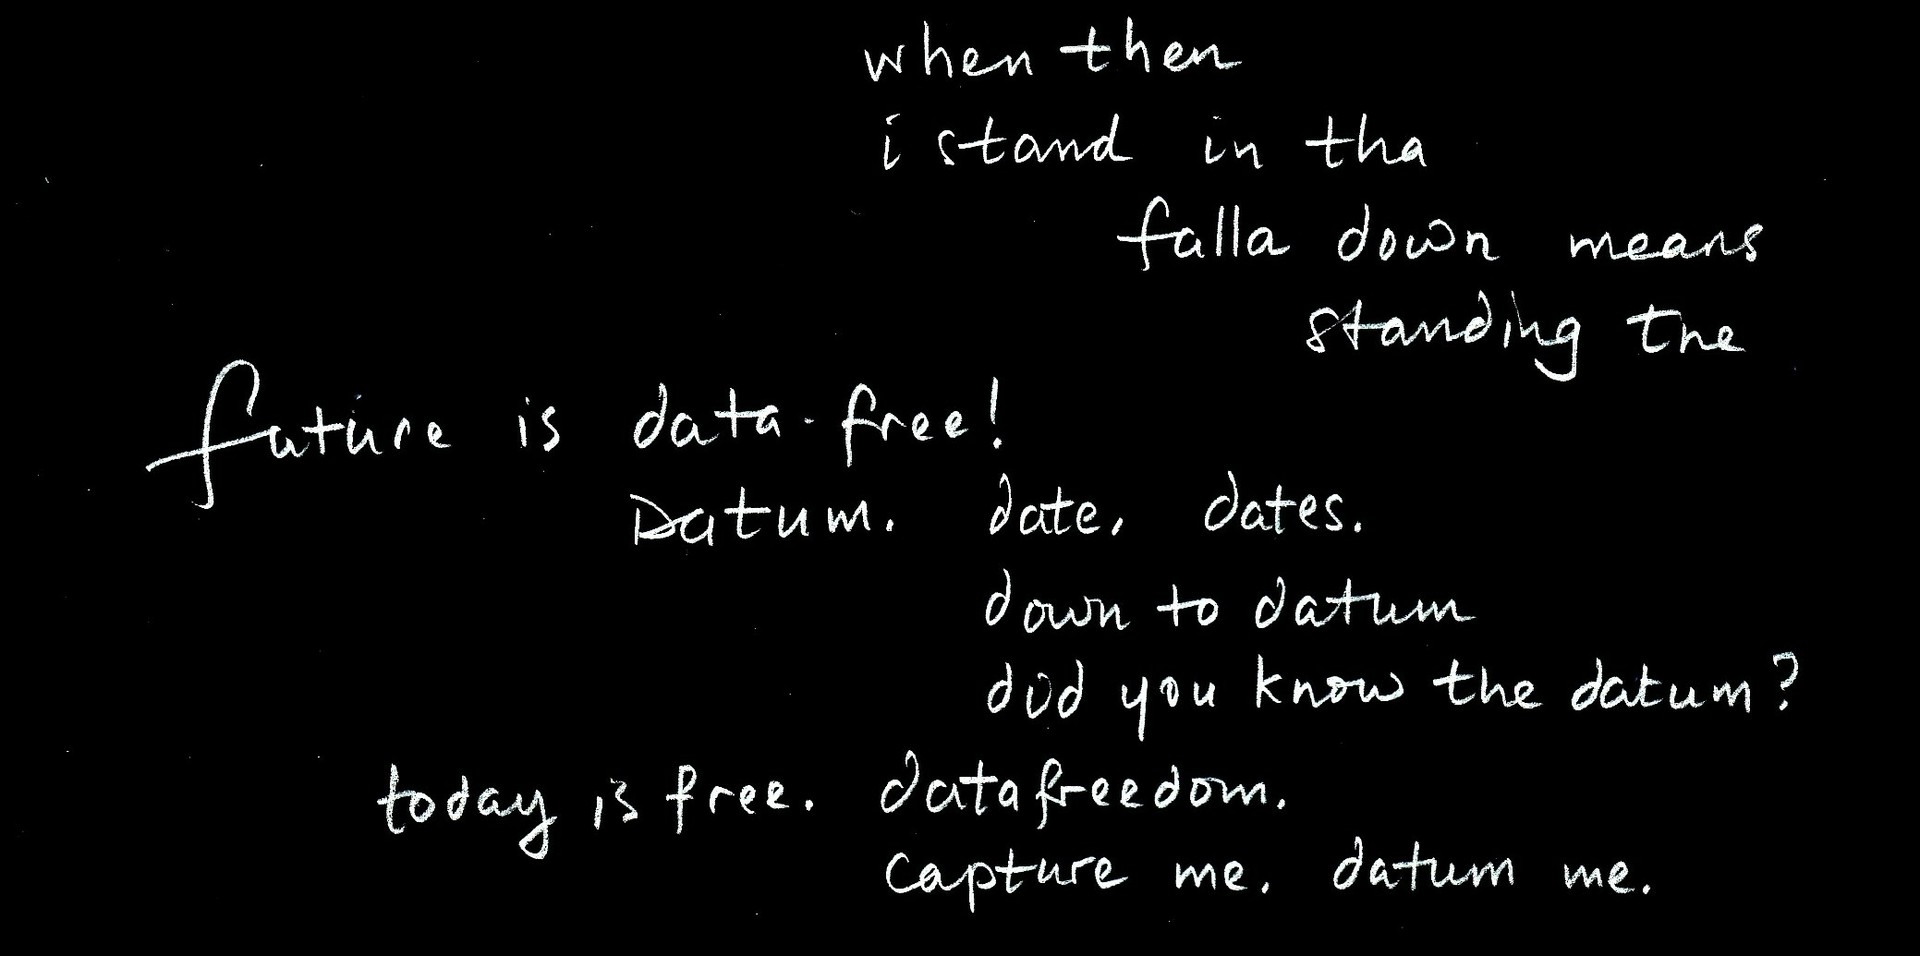 when then
i stand in tha
falla down means
standing the
future is data-free!
Datum. date, dates.
down to datum
did you know the datum?
today is free. datafreedom.
capture me. datum me.